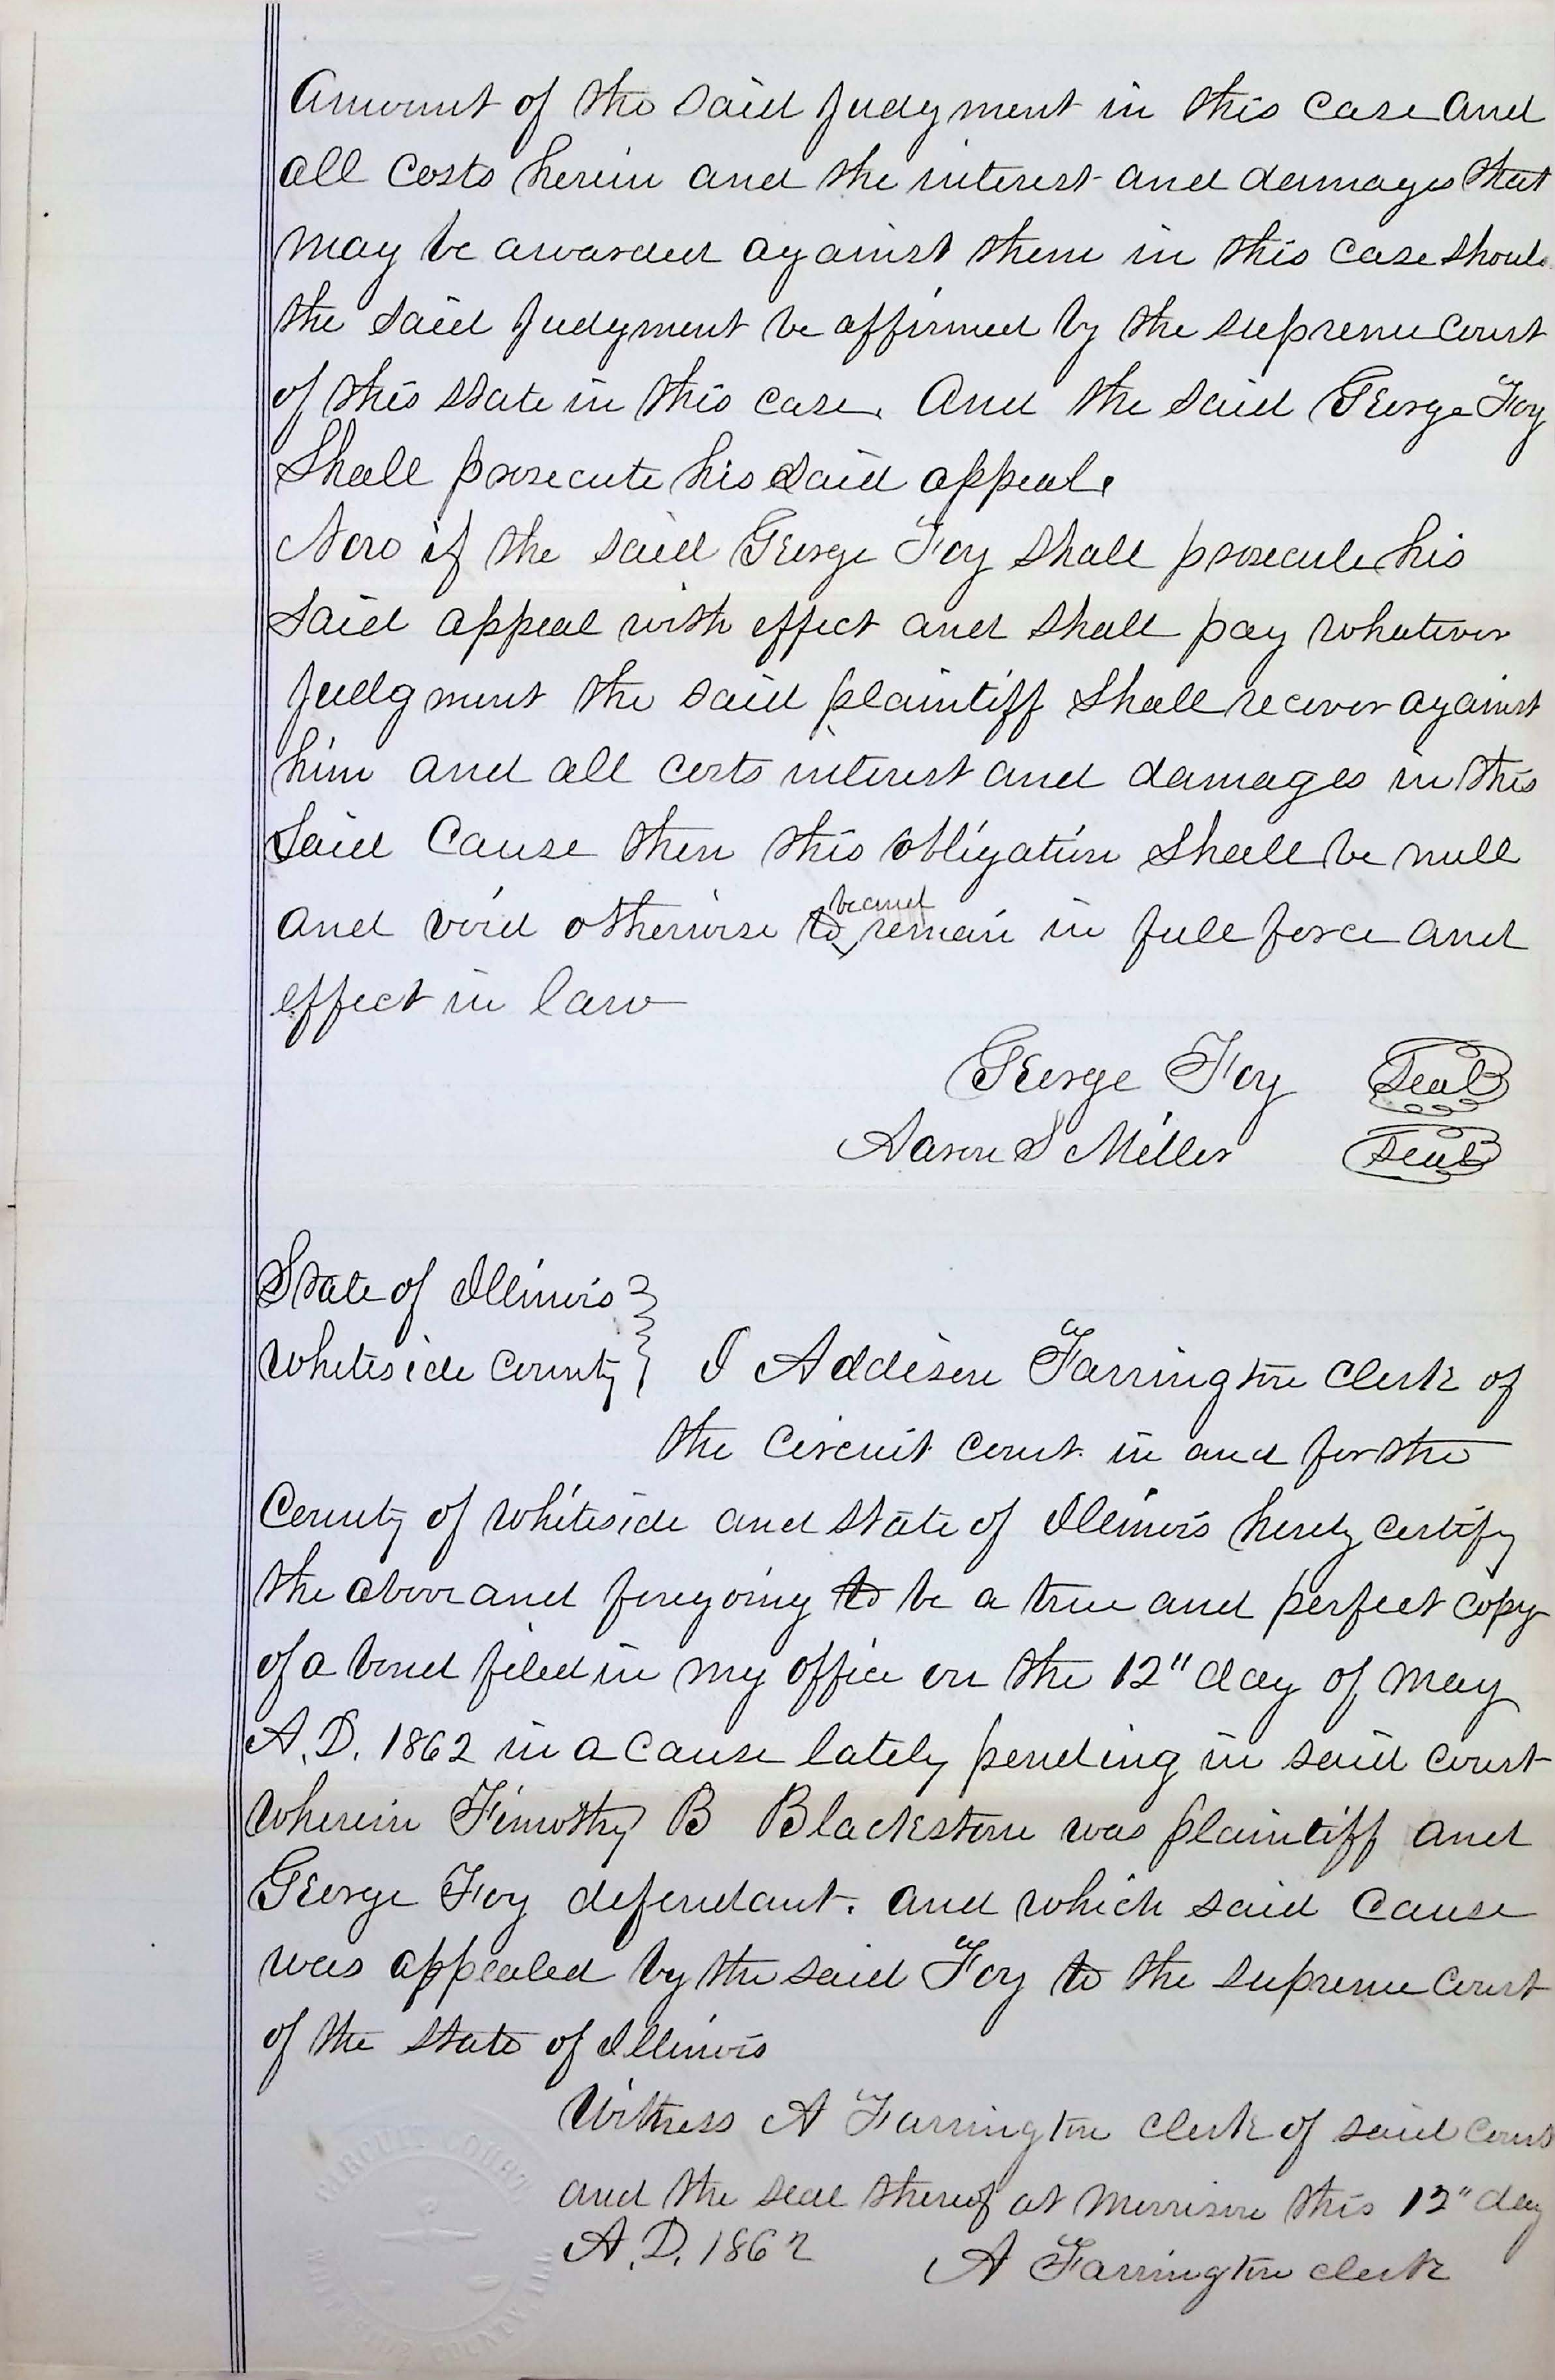 Amount of the said Judgment in this case and
all costs herein and the interest and damages that
may be awarded against them in this case should
the said Judgment be affirmed by the supreme court
of this state in this case. And the said George Foy
Shall prosecute his said appeal.
Now if the said George Foy shall prosecute his
said appeal with effect and shall pay whatever
Judgment the said plaintiff shall recover against
him and all costs interest and damages in this
said Cause then this obligation shall be null
be and
and void otherwise to remain in full force and
effect in law
George Foy Seal
Aaron S Miller Seal
State of Illinois
Whiteside County } I Addison Farrington Clerk of
the Circuit court in and for the
County of Whiteside and state of Illinois hereby certify
the above and foregoing to be a true and perfect copy
of a bond filed in my office on the 12" day of May
A.D. 1862 in a cause lately pending in said court
wherein Timothy B Blackstone was plaintiff and
George Foy defendant. and which said cause
was appealed by the said Foy to the supreme court
of the state of Illinois
Witness A Farrington clerk of said court
and the seal thereof at Morrison this 12" day
A.D. 1862 A Farrington clerk